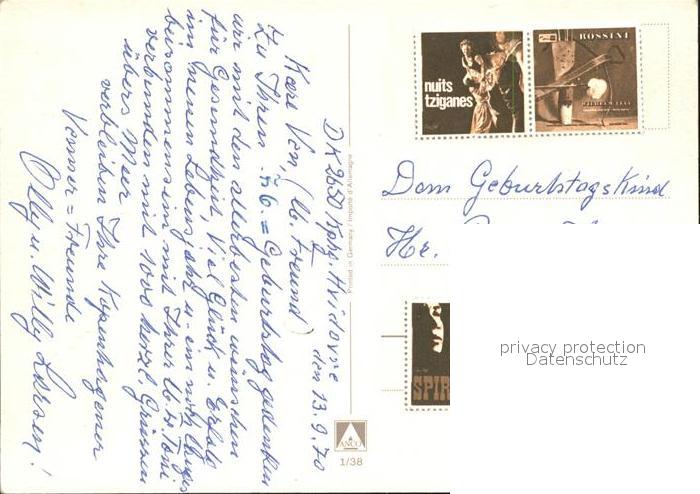 DK 2650 Kphg. Hvidovre
den 13.9.70
Kære Ven, (lb. Freund)
Zu Ihrem 76.= Geburtstag gedenken
wir mit den allerbesten wünschen
für Gesundheit, viel Glück u. Erfolg
im neuen Lebensjahr u. ein
beisammensein mit Ihrer lb. Fr. Toni
verbunden mit 1000 herzl. Grüssen
übers Meer
verbleiben Ihre Kopenhagener
Venner = Freunde
Olly u. Willy Larsen!
Printed in Germany / Importé d'Allemagne
ANCO
1/38
nuits
tziganes
ROSSINI
Dem Geburtstagskind
Hr.
SPIR
privacy protection
Datenschutz